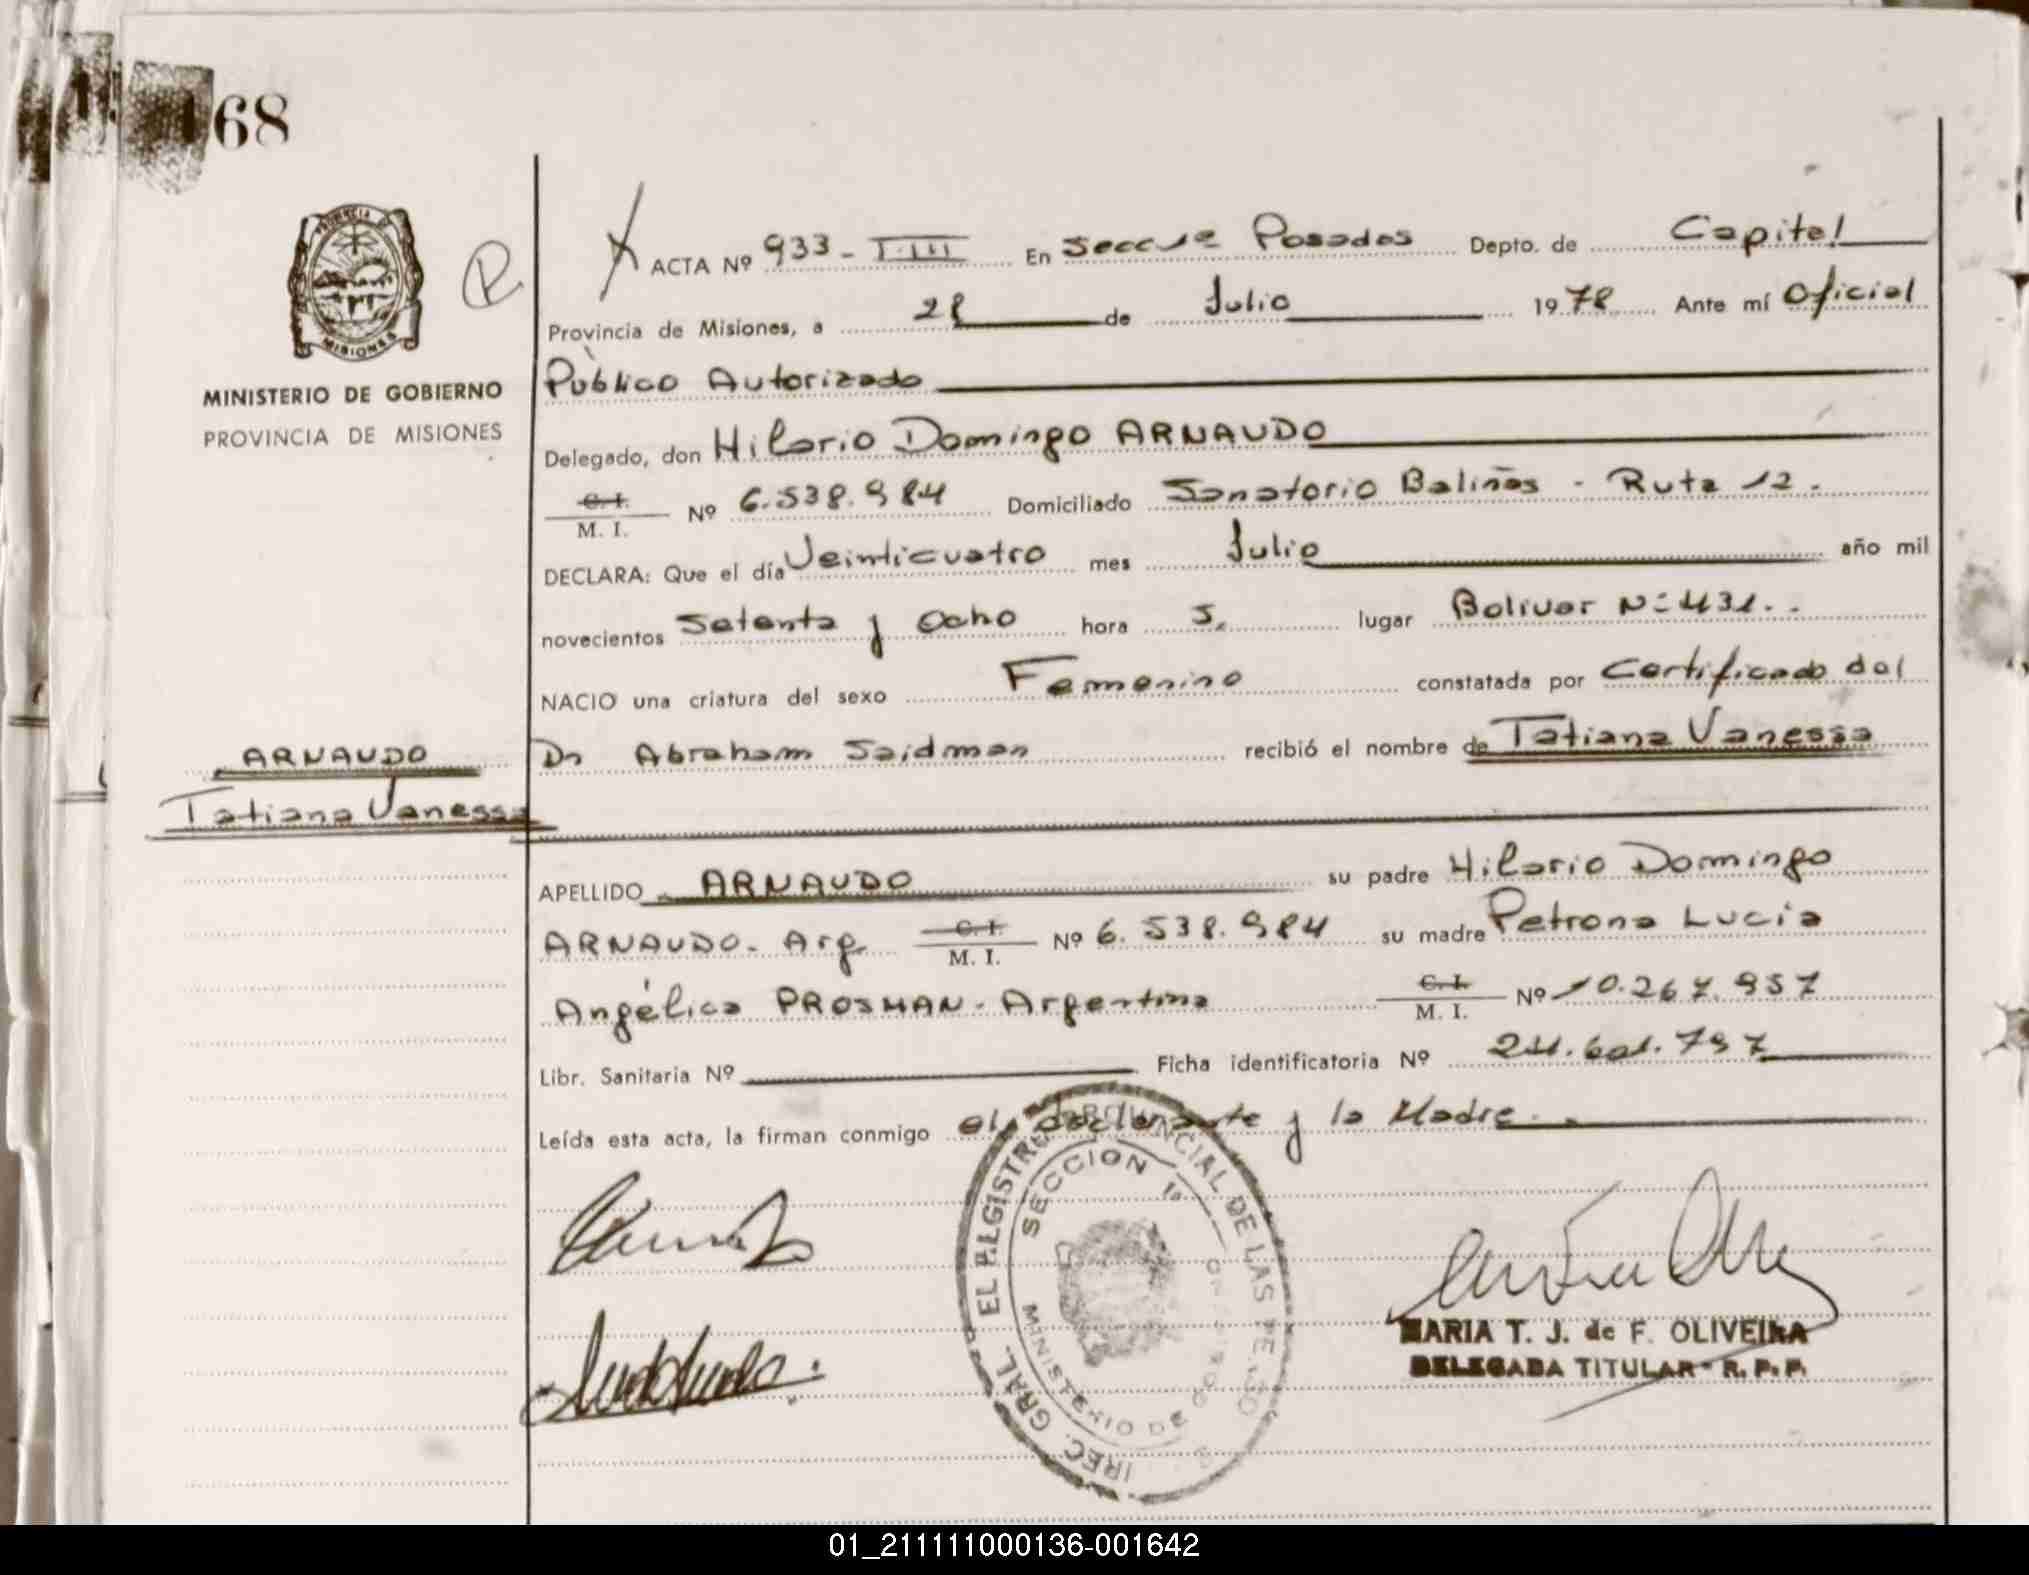 68
MINISTERIO DE GOBIERNO
PROVINCIA DE MISIONES
ACTA Nº 933 - T-III En Secc 1ª Posadas Depto. de Capital
Provincia de Misiones, a 28 de Julio 1978 Ante mí Oficial
Público Autorizado
Delegado, don Hilario Domingo ARNAUDO
C. I. M. I. Nº 6.538.984 Domiciliado Sanatorio Baliñas - Ruta 12.
DECLARA: Que el día Veinticuatro mes Julio año mil
novecientos Setenta y Ocho hora 5. lugar Bolivar Nº 431.
NACIO una criatura del sexo Femenino constatada por Certificado del
Dr Abraham Saidman recibió el nombre de Tatiana Vanessa
ARNAUDO
Tatiana Vanessa
APELLIDO ARNAUDO su padre Hilario Domingo
ARNAUDO. Arg C. I. M. I. Nº 6.538.984 su madre Petrona Lucia
Angélica PROSMAN - Argentina C. I. M. I. Nº 10.267.957
Libr. Sanitaria Nº Ficha identificatoria Nº 24.601.797
Leída esta acta, la firman conmigo el declarante y la Madre.
SECCION 1ª
MARIA T. J. de F. OLIVEIRA
DELEGADA TITULAR - R. P. P.
01_211111000136-001642